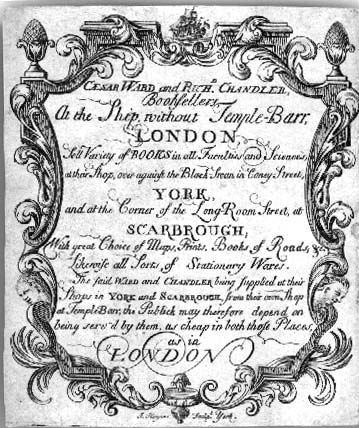 CÆSAR WARD and RICHD. CHANDLER,
Bookſellers,
At the Ship, without Temple-Barr,
LONDON,
Sell Variety of BOOKS in all Faculties and Sciences,
at their Shop, over against the Black Swan in Coney Street,
YORK,
and at the Corner of the Long-Room Street, at
SCARBROUGH;
With great Choice of Maps, Prints, Books of Roads, &c.
Likewiſe all Sorts of Stationary Wares.
The ſaid WARD and CHANDLER being Supplied at their
Shops in YORK and SCARBROUGH, from their own Shop
at Temple Barr, the Publick may therefore depend on
being serv'd by them, as cheap in both thoſe Places,
as in
LONDON
Sculpt. York.